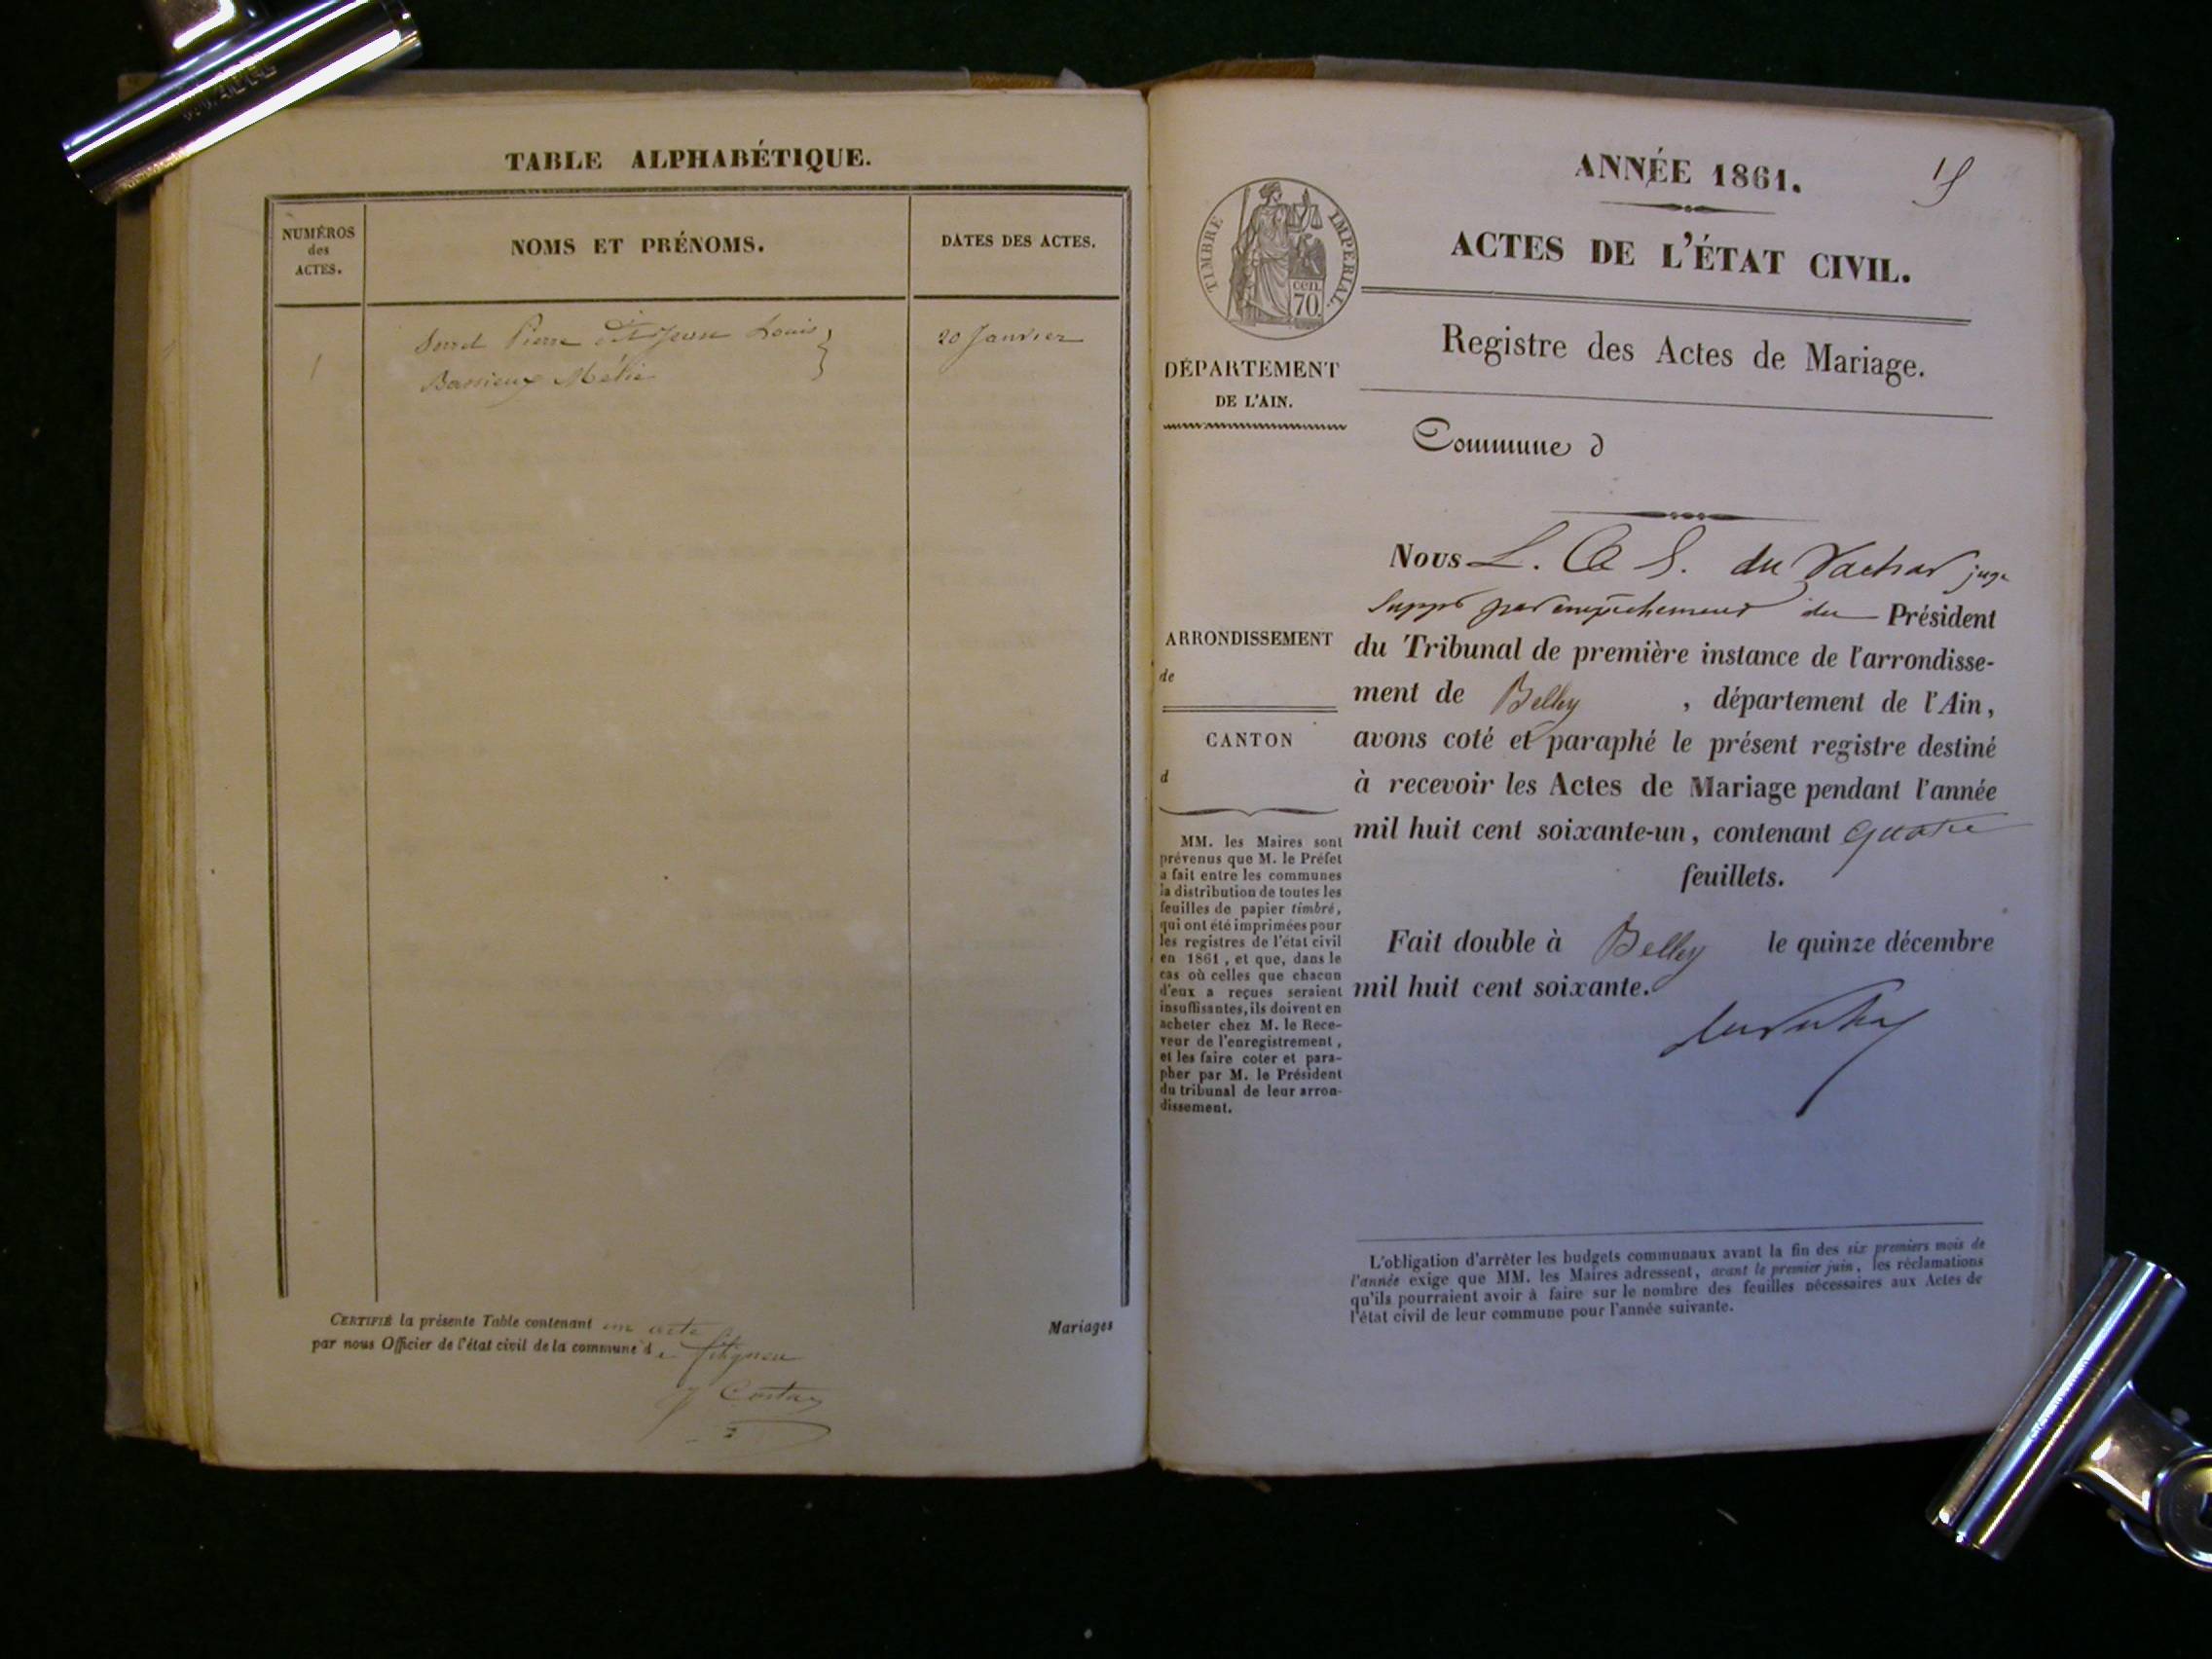 TABLE ALPHABÉTIQUE.
NUMÉROS
des
ACTES.
NOMS ET PRÉNOMS.
DATES DES ACTES.
1
Pierre dit Jean Louis
20 Janvier
CERTIFIÉ la présente Table contenant un acte
par nous Officier de l'état civil de la commune d e
Mariages
ANNÉE 1861.
ACTES DE L'ÉTAT CIVIL.
Registre des Actes de Mariage.
TIMBRE IMPÉRIAL.
cen.
70.
DÉPARTEMENT
DE L'AIN.
Commune d
Nous L. du juge
supp par empêchement du Président
du Tribunal de première instance de l'arrondisse-
ment de Belley , département de l'Ain,
avons coté et paraphé le présent registre destiné
à recevoir les Actes de Mariage pendant l'année
mil huit cent soixante-un, contenant quatre
feuillets.
Fait double à Belley le quinze décembre
mil huit cent soixante.
ARRONDISSEMENT
de
CANTON
d
MM. les Maires sont
prévenus que M. le Préfet
a fait entre les communes
la distribution de toutes les
feuilles de papier timbré,
qui ont été imprimées pour
les registres de l'état civil
en 1861, et que, dans le
cas où celles que chacun
d'eux a reçues seraient
insuffisantes, ils doivent en
acheter chez M. le Rece-
veur de l'enregistrement,
et les faire coter et para-
pher par M. le Président
du tribunal de leur arron-
dissement.
L'obligation d'arrêter les budgets communaux avant la fin des six premiers mois de
l'année exige que MM. les Maires adressent, avant le premier juin, les réclamations
qu'ils pourraient avoir à faire sur le nombre des feuilles nécessaires aux Actes de
l'état civil de leur commune pour l'année suivante.